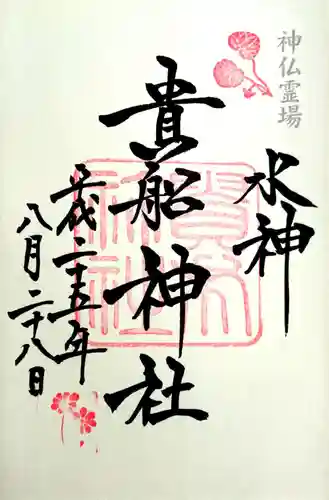 神仏霊場
水神
貴船神社
平成二十五年
八月二十八日